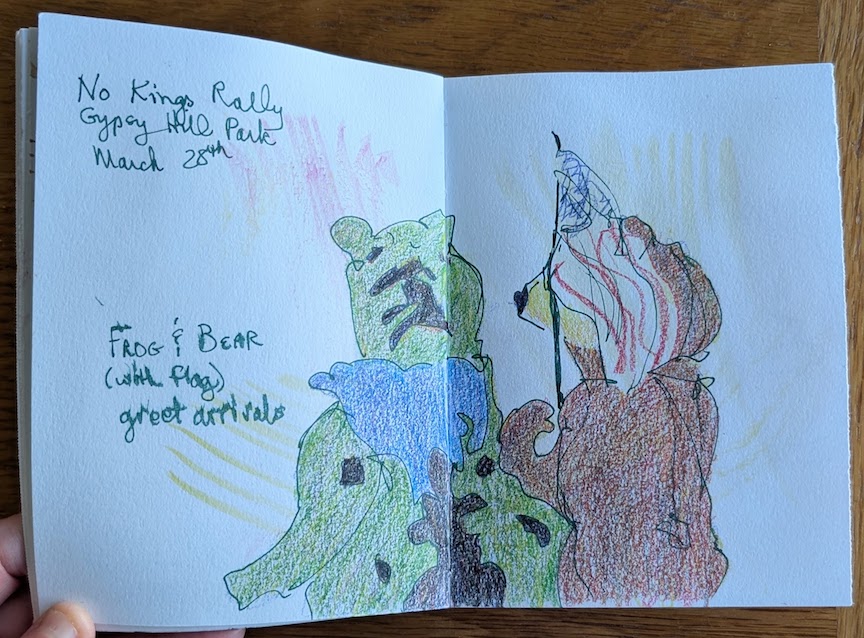 No Kings Rally
Gypsy Hill Park
March 28th
FROG & BEAR
(with flag)
greet arrivals